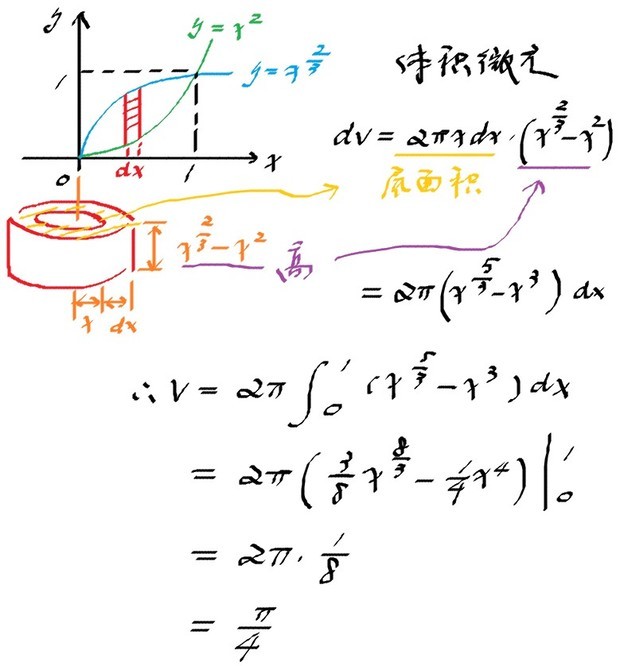 y
y = x²
y = x^{2/3}
1
体积微元
dv = 2πxdx·(x^{2/3} - x²)
0
dx
1
x
底面积
x^{2/3} - x²
高
= 2π(x^{5/3} - x³) dx
x
dx
∴ V = 2π∫₀¹ (x^{5/3} - x³) dx
= 2π(3/8 x^{8/3} - 1/4 x⁴)|₀¹
= 2π · 1/8
= π/4